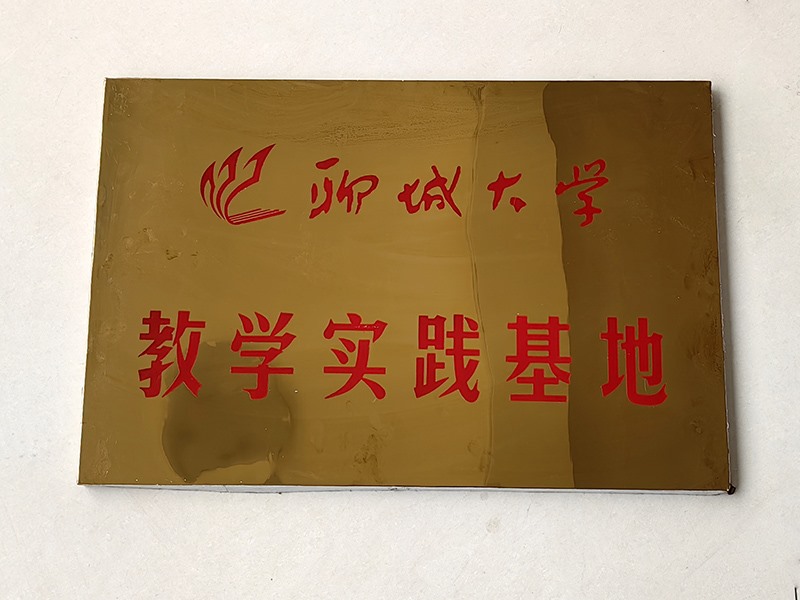 聊城大学
教学实践基地